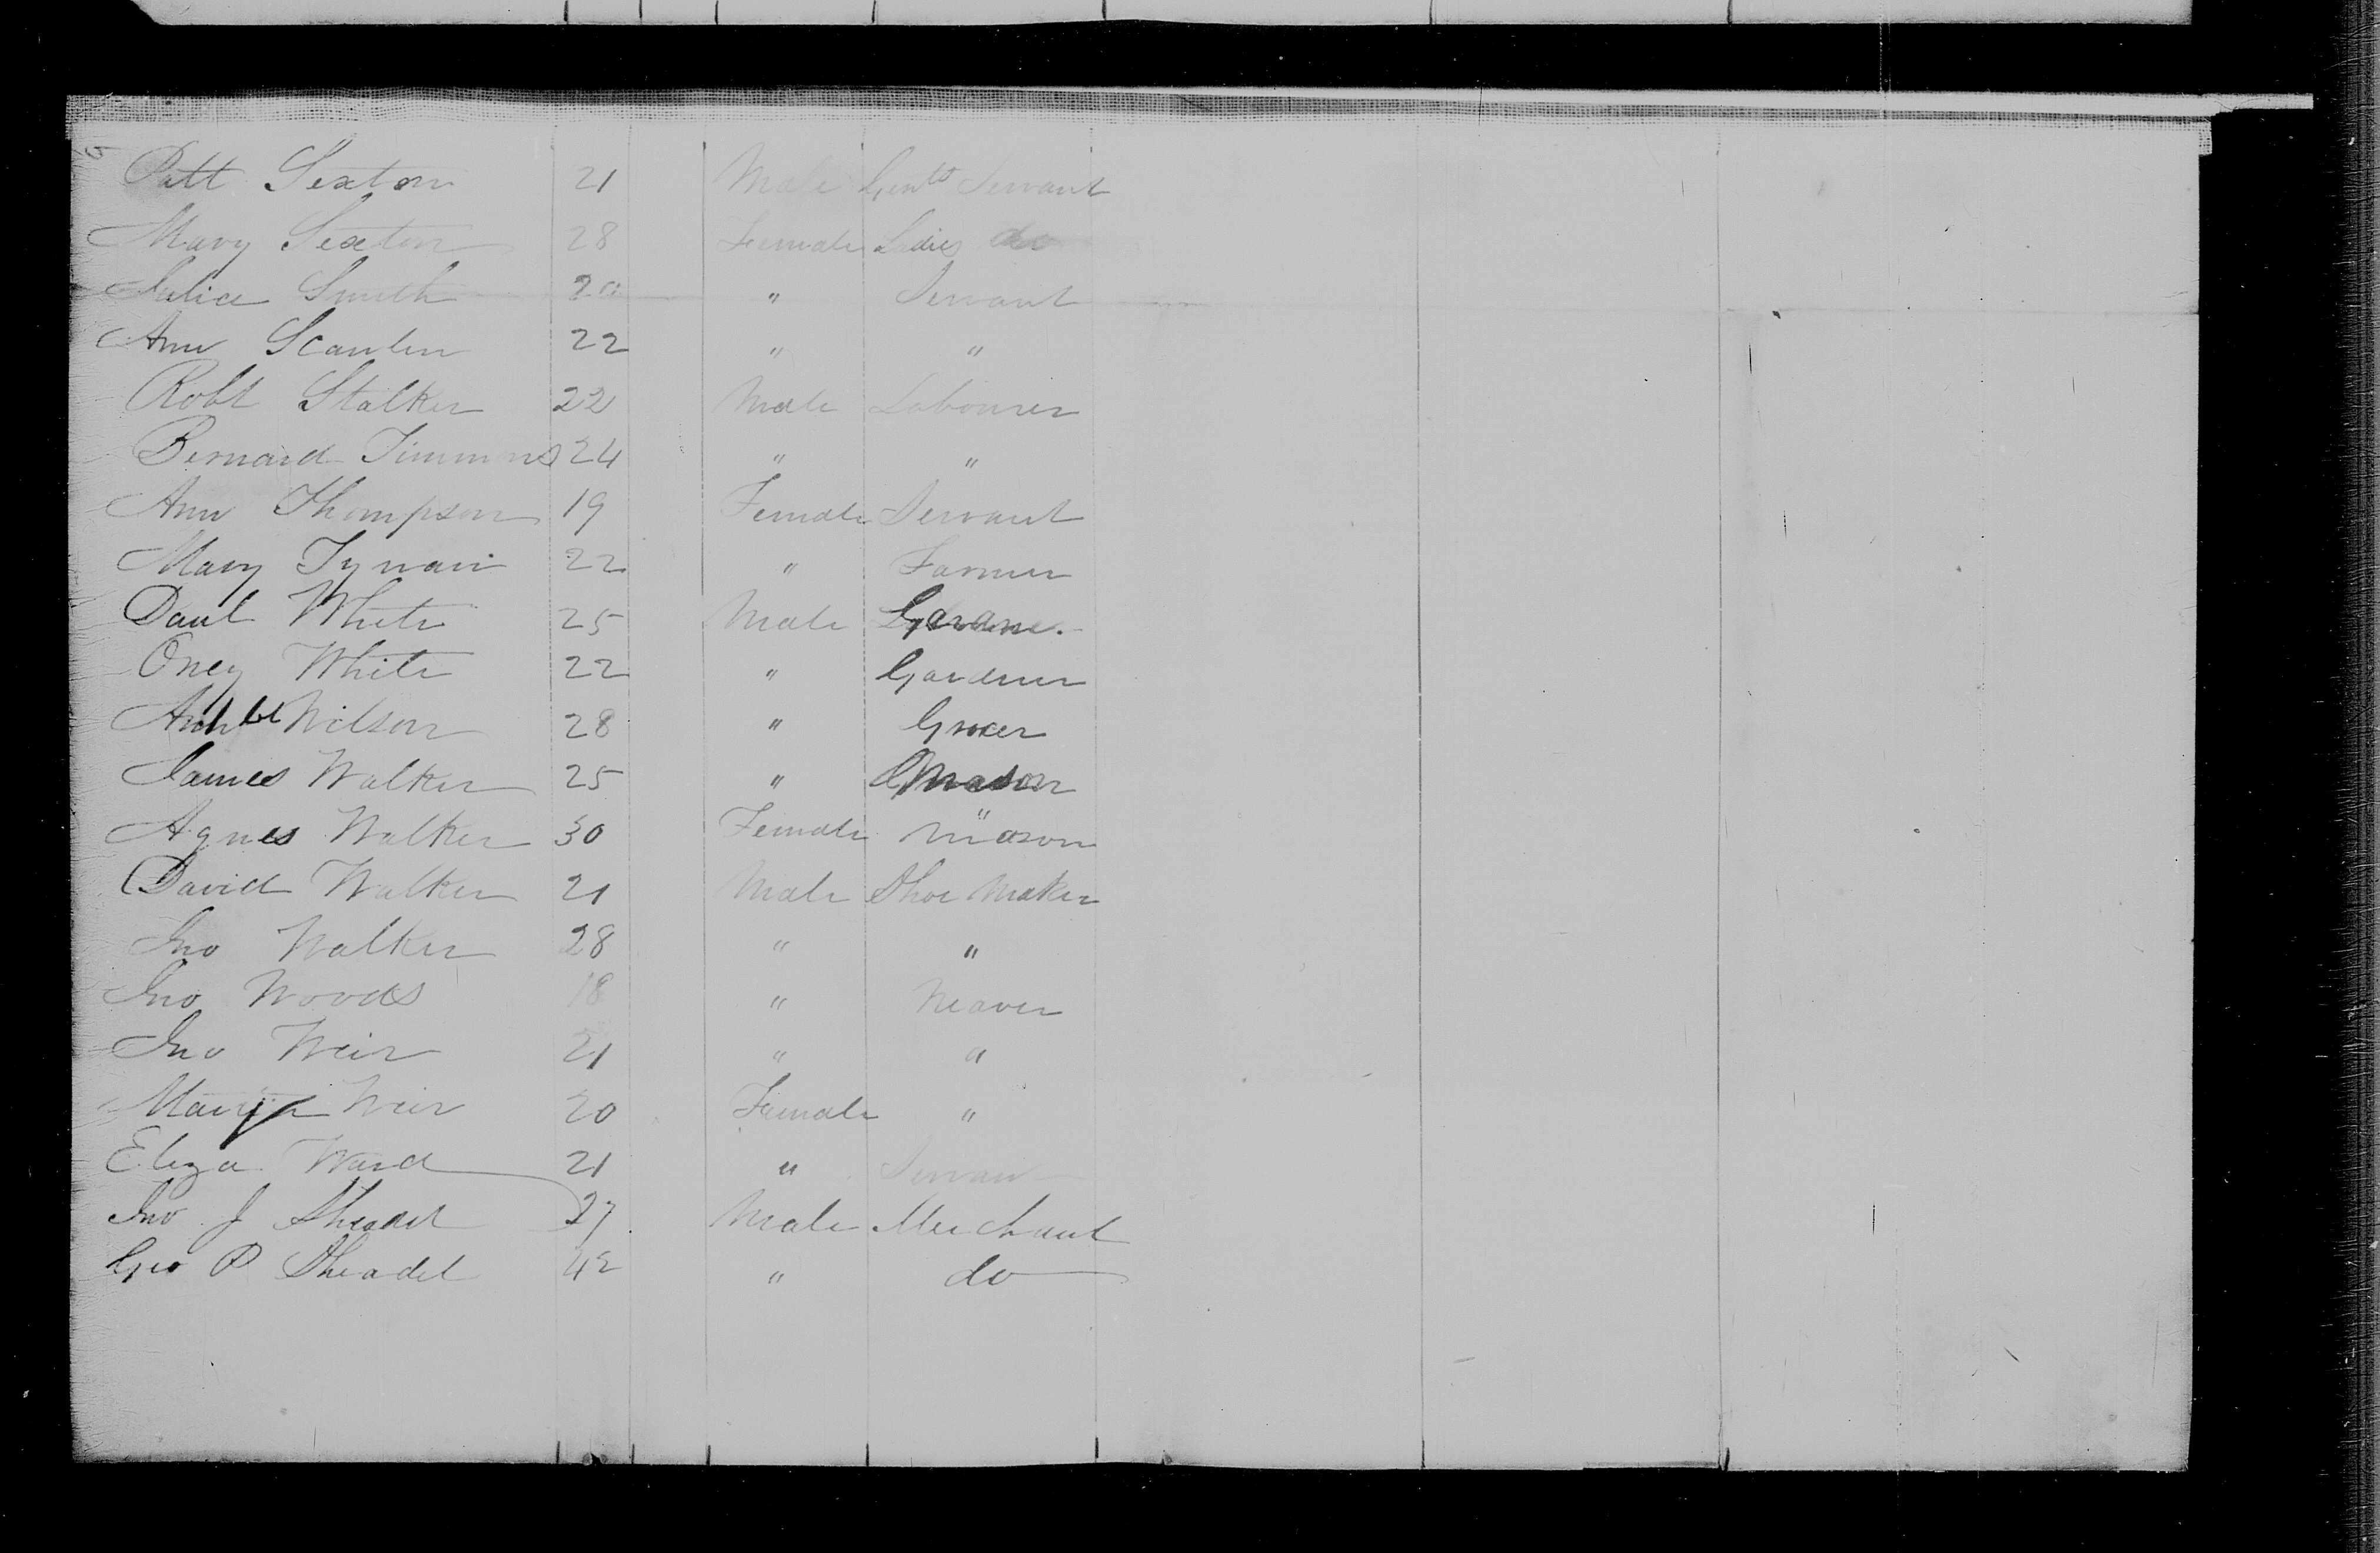 Patt Sexton 21 Male Gents Servant
Mary Sexton 28 Female Ladies do
Alice Smith 20 " Servant
Ann Scanlen 22 " "
Robt Stalker 22 Male Labourer
Bernard Timmons 24 " "
Ann Thompson 19 Female Servant
Mary Tynan 22 " Farmer
Danl White 25 Male
Oney White 22 " Gardner
Archbl Wilson 28 " Grocer
James Walker 25 " Mason
Agnes Walker 30 Female Mason
David Walker 21 Male Shoe Maker
Jno Walker 28 " "
Jno Woods 18 " Weaver
Jno Weir 21 " "
Mary Weir 20 Female "
Eliza Ward 21 " Servant
Jno J Sheadel 27 Male Merchant
Geo P Sheadel 42 " do